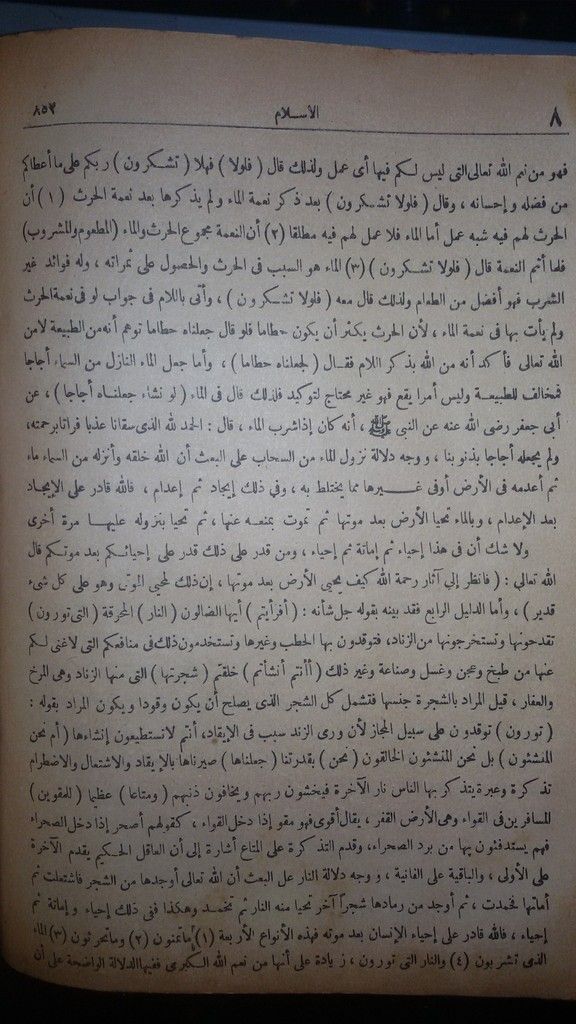 ٨
الأســلام
٨٥٣
فهو من نعم الله تعالى التى ليس لكم فيها أى عمل ولذلك قال ( فلولا ) فهلا ( تشكرون ) ربكم على ما أعطاكم
من فضله وإحسانه ، وقال ( فلولا تشكرون ) بعد ذكر نعمة الماء ولم يذكرها بعد نعمة الحرث (١) أن
الحرث لهم فيه شبه عمل أما الماء فلا عمل لهم فيه مطلقا (٢) أن النعمة مجموع الحرث والماء (المطعوم والمشروب)
فلما أتم النعمة قال ( فلولا تشكرون ) (٣) الماء هو السبب فى الحرث والحصول على ثمراته ، وله فوائد غير
الشرب فهو أفضل من الطعام ولذلك قال معه ( فلولا تشكرون ) ، وأتى باللام فى جواب لو فى نعمة الحرث
ولم يأت بها فى نعمة الماء ، لأن الحرث يكثر أن يكون حطاما فلو قال جعلناه حطاما توهم أنه من الطبيعة لا من
الله تعالى فأكد أنه من الله بذكر اللام فقـال ( لجعلناه حطاما ) ، وأما جعل الماء النازل من السماء أجاجا
فمخالف للطبيعـة وليس أمرا يقع فهو غير محتاج لتوكيد فلذلك قال فى الماء ( لو نشاء جعلنـاه أجاجا ) ، عن
أبى جعفر رضى الله عنه عن النبى ﷺ ، أنه كان إذا شرب الماء ، قال : الحمد لله الذى سقانا عذبا فراتا برحمته،
ولم يجعله أجاجا بذنوبنا ، ووجه دلالة نزول الماء من السحاب على البعث أن الله خلقه وأنزله من السماء ماء
ثم أعدمه فى الأرض أو فى غـــيرها مما يختلط به ، وفى ذلك إيجاد ثم إعدام ، فالله قادر على الإيجـاد
بعد الإعدام ، وبالماء تحيا الأرض بعد موتها ثم تموت بمنعـه عنها ، ثم تحيا بنزوله عليهـا مرة أخرى
ولا شك أن فى هذا إحياء ثم إماتة ثم إحياء ، ومن قدر على ذلك قدر على إحيائـكم بعد موتـكم قال
الله تعالى : ( فانظر إلى آثار رحمة الله كيف يحيى الأرض بعد موتها ، إن ذلك لمحيى الموتى وهو على كل شىء
قدير ) ، وأما الدليل الرابع فقد بينه بقوله جل شأنه : ( أفرأيتم ) أيها الضالون ( النار ) المحرقة ( التى تورون )
تقدحونها وتستخرجونها من الزناد، فتوقدون بها الحطب وغيرها وتستخدمون ذلك فى منافعكم التى لا غنى لـكم
عنها من طبخ وعجن وغسل وصناعة وغير ذلك ( أأنتم أنشأتم ) خلقتم ( شجرتها ) التى منها الزناد وهى المرخ
والعفار ، قيل المراد بالشجرة جنسها فتشمل كل الشجر الذى يصلح أن يكون وقودا ويكون المراد بقوله :
( تورون ) توقدون على سبيل المجاز لأن ورى الزند سبب فى الإيقاد، أنتم لا تستطيعون إنشاءها ( أم نحن
المنشئون ) بل نحن المنشئون الخالقون ( نحن ) بقدرتنا ( جعلناها ) صيرناها بالإيقاد والاشتعال والاضطرام
تذكرة وعبرة يتذكر بها الناس نار الآخرة فيخشون ربهم ويخافون ذنبهم ( ومتاعا ) عظيما ( للمقوين )
المسافرين فى القواء وهى الأرض القفر ، يقال أقوى فهو مقو إذا دخل القواء ، كقولهم أصحر إذا دخل الصحراء
فهم يستدفئون بها من برد الصحراء، وقدم التذكرة على المتاع أشارة إلى أن العاقل الحـكيم يقدم الآخرة
على الأولى ، والباقية على الفانية ، ووجه دلالة النار على البعث أن الله تعالى أوجدها من الشجر فاشتعلت ثم
أماتها فخمدت ، ثم أوجد من رمادها شجرا آخر تحيا منه النار ثم تخمـد وهكذا فى ذلك إحياء وإماتة ثم
إحياء ، فالله قادر على إحياء الإنسان بعد موته فهذه الأنواع الأربعة (١) ما تمنون (٢) وما تحرثون (٣) الماء
الذى تشربون (٤) والنار التى تورون ، زيادة على أنها من نعم الله الـكبرى ففيها الدلالة الواضحة على أن